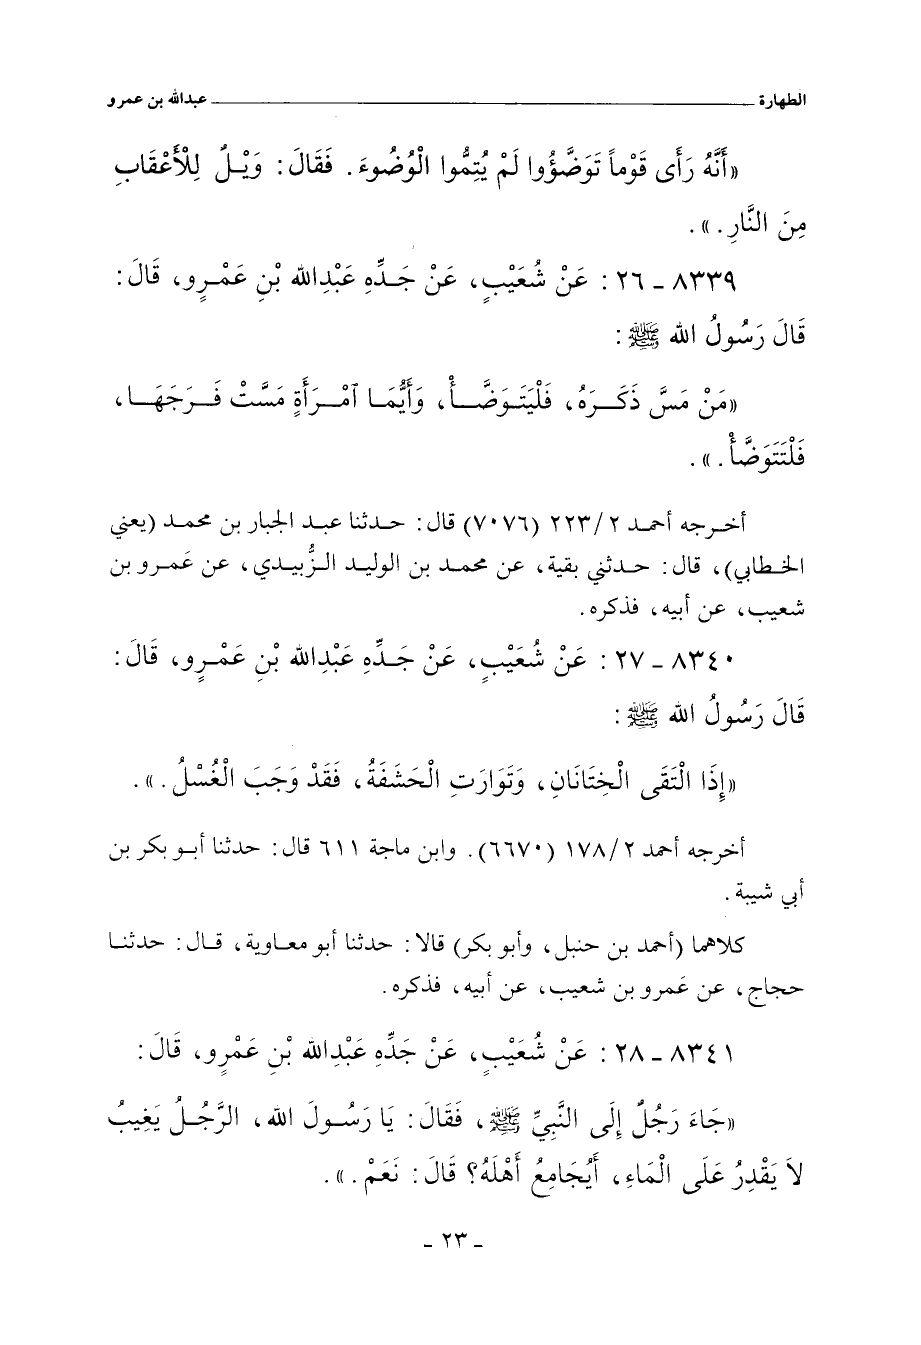 الطهارة ــــــــ عبدالله بن عمرو
«أَنَّهُ رَأَى قَوْماً تَوَضَّؤُوا لَمْ يُتِمُّوا الْوُضُوءَ. فَقَالَ: وَيْـلٌ لِلْأَعْقَابِ
مِنَ النَّارِ.».
٨٣٣٩ - ٢٦: عَنْ شُعَيْبٍ، عَنْ جَـدِّهِ عَبْدِاللهِ بْنِ عَمْـرٍو، قَالَ:
قَالَ رَسُولُ الله ﷺ:
«مَنْ مَسَّ ذَكَـــرَهُ، فَلْيَتَـوَضَّـــأْ، وَأَيُّمَـا ٱمْـــرَأَةٍ مَسَّتْ فَـــرَجَهَـــا،
فَلْتَتَوَضَّأْ.».
أخـرجه أحمـد ٢/ ٢٢٣ (٧٠٧٦) قال: حـدثنا عبـد الجبار بن محمـد (يعني
الخـطابي)، قال: حـدثني بقية، عن محمـد بن الوليـد الـزُّبيـدي، عن عَمـرو بن
شعيب، عن أبيه، فذكره.
٨٣٤٠ - ٢٧: عَنْ شُعَيْبٍ، عَنْ جَـدِّهِ عَبْدِاللهِ بْنِ عَمْـرٍو، قَالَ:
قَالَ رَسُولُ الله ﷺ:
«إِذَا الْتَقَى الْخِتَانَانِ، وَتَوَارَتِ الْحَشَفَةُ، فَقَدْ وَجَبَ الْغُسْلُ.».
أخرجه أحمد ٢/ ١٧٨ (٦٦٧٠). وابن ماجة ٦١١ قال: حدثنا أبـو بكر بن
أبي شيبة.
كلاهما (أحمد بن حنبل، وأبو بكر) قالا: حدثنا أبو معـاوية، قـال: حدثنـا
حجاج، عن عَمرو بن شعيب، عن أبيه، فذكره.
٨٣٤١ - ٢٨: عَنْ شُعَيْبٍ، عَنْ جَدِّهِ عَبْدِاللهِ بْنِ عَمْرٍو، قَالَ:
«جَاءَ رَجُلٌ إِلَى النَّبِيِّ ﷺ، فَقَالَ: يَا رَسُـولَ الله، الرَّجُـلُ يَغِيبُ
لاَ يَقْدِرُ عَلَى الْمَاءِ، أَيُجَامِعُ أَهْلَهُ؟ قَالَ: نَعَمْ.».
- ٢٣ -